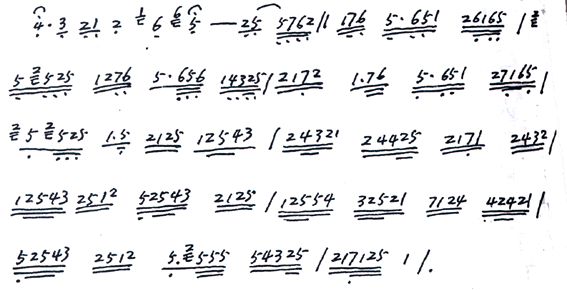 4·3 21 2 1 6 6 5 — 25 5762 // 176 5·651 26165 / 2
5 2 525 1276 5·656 14325 / 2172 1.76 5·651 27165 /
2 5 2 525 1.5 2125 12543 / 24321 24425 2171 2432 /
12543 2512 52543 2125 / 12554 32521 7124 42421 /
52543 2512 5.2 555 54325 / 217125 1 /.